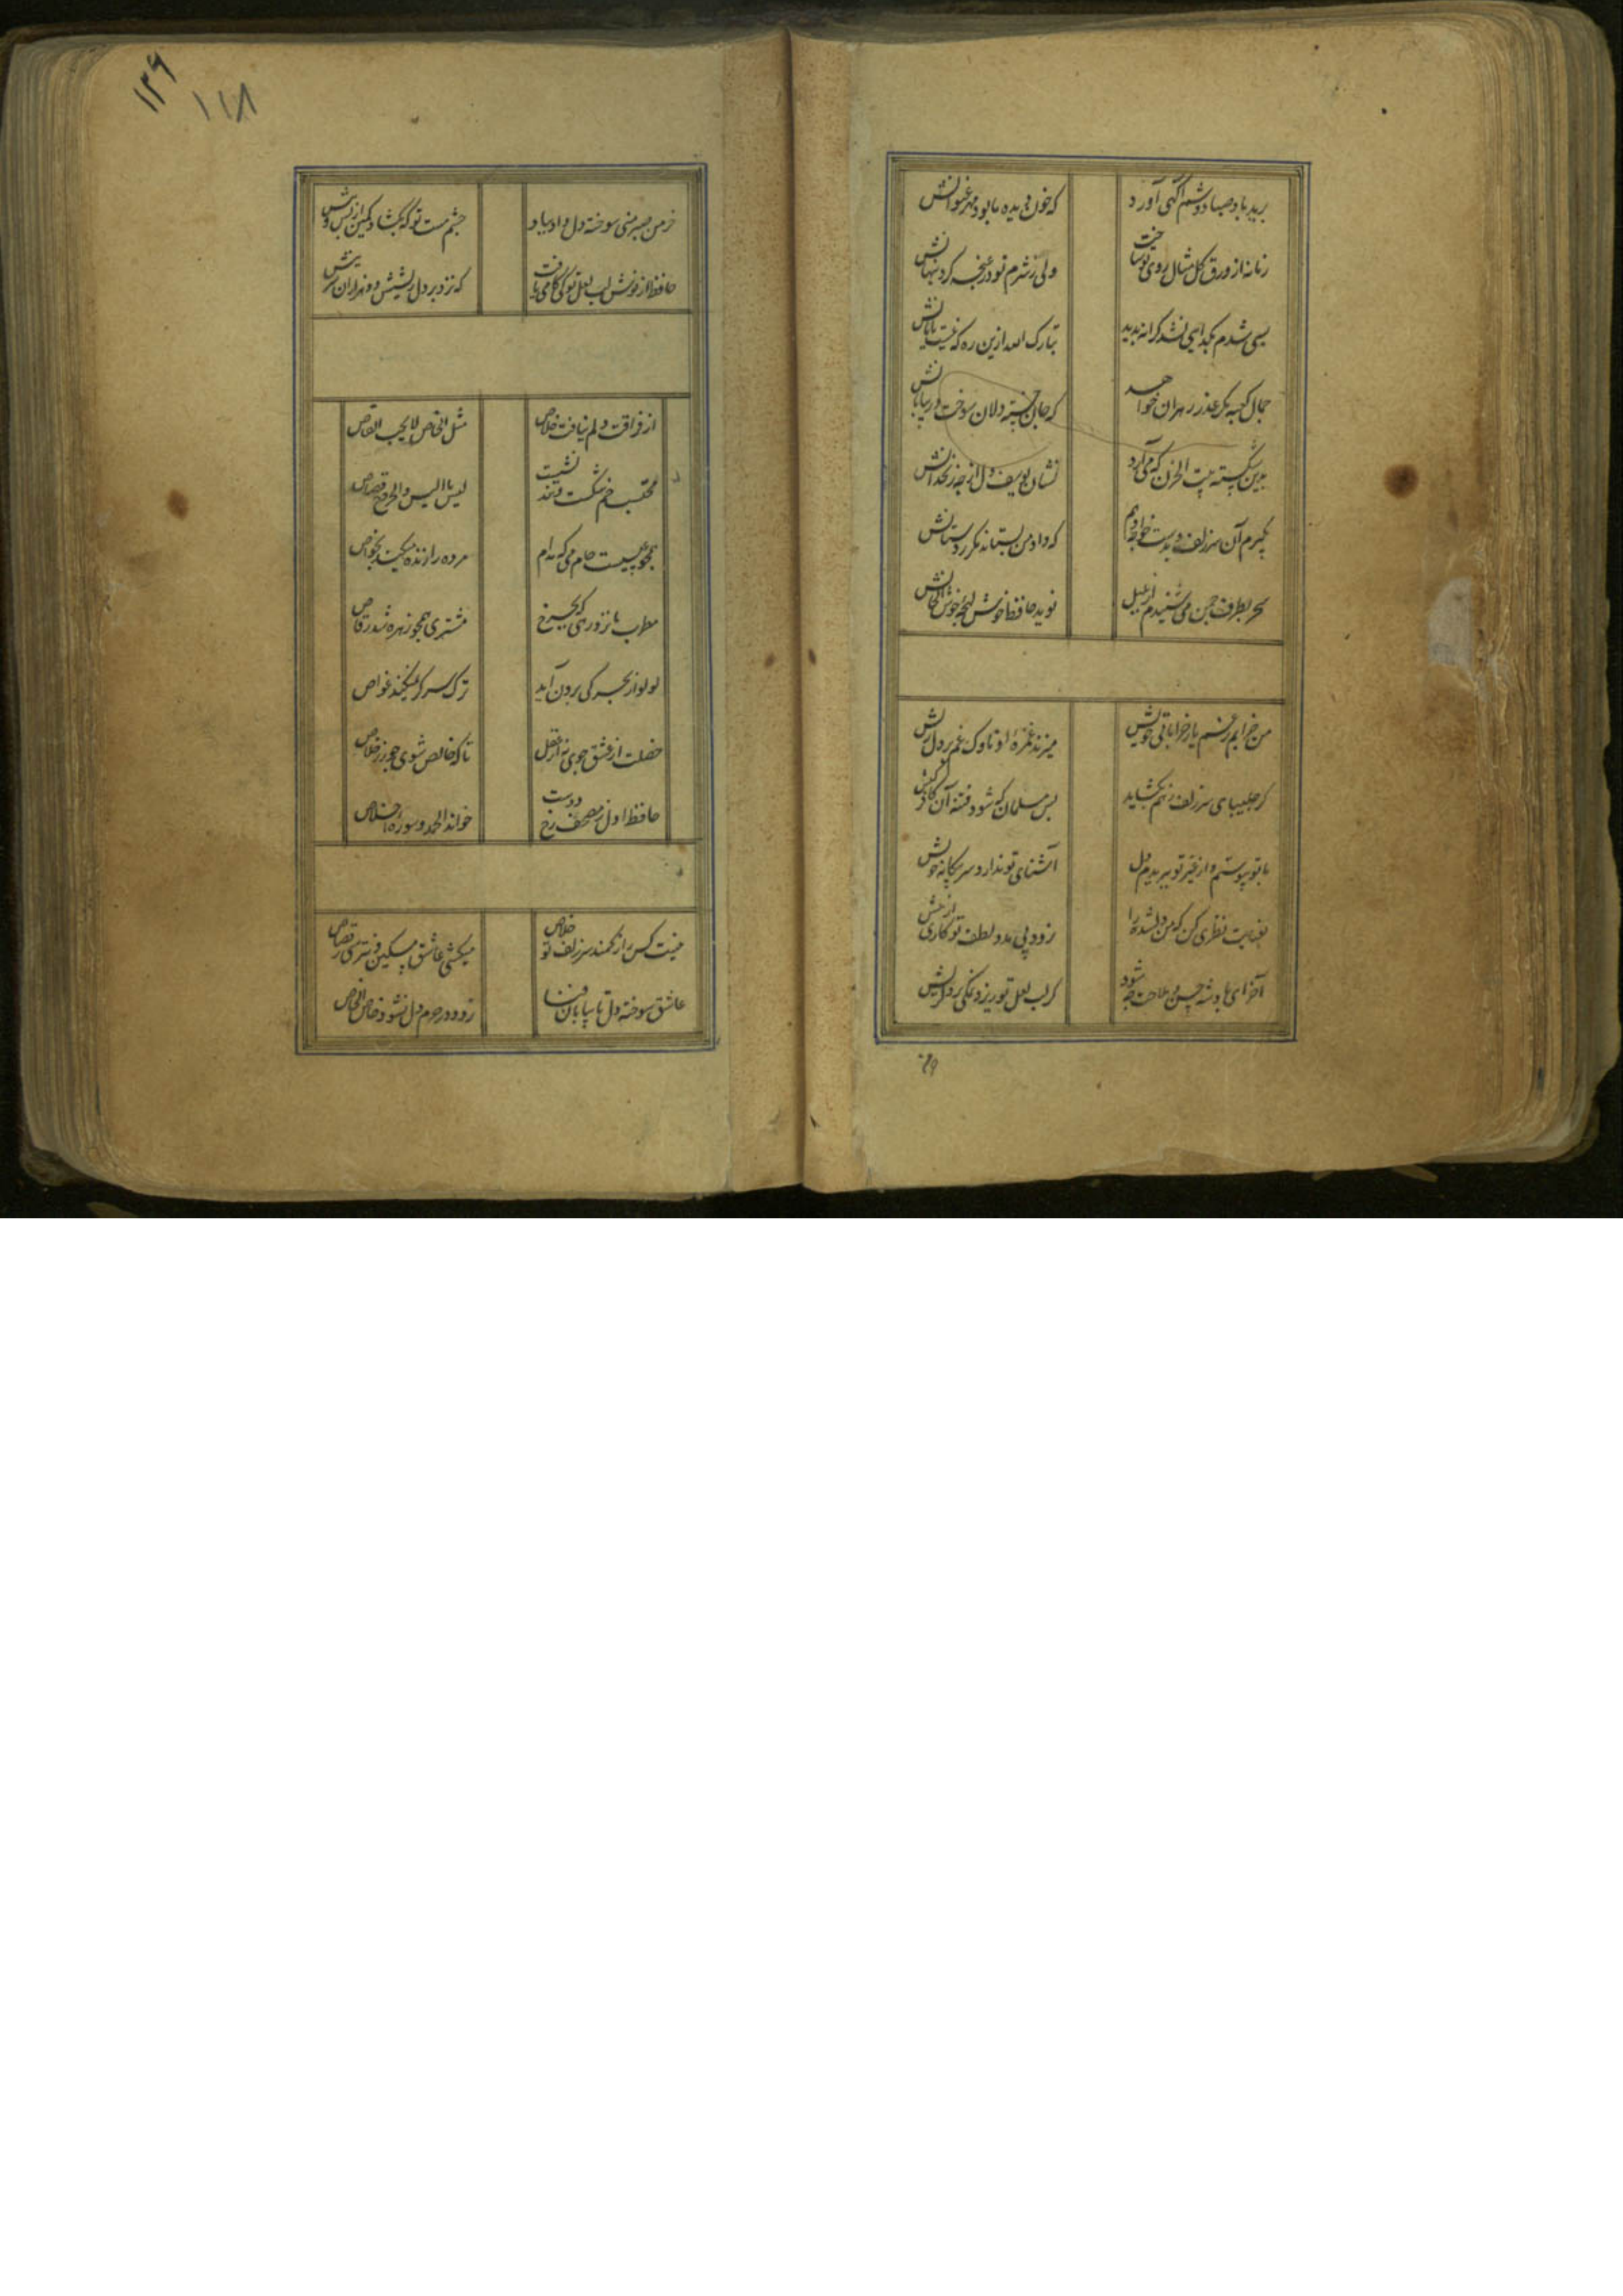 برید باد صبا دوشم آگهی آورد
که خون دیده ما بود مهر عنوانش
زمانه از ورق گل مثال روی تو ساخت
ولی ز شرم تو در غنچه کرد پنهانش
بسی شدم بگدایی نشد کرانه پدید
تبارک الله ازین ره که نیست پایانش
جمال کعبه مگر عذر رهروان خواهد
که جان خسته دلان سوخت در بیابانش
بدین شکسته بیت الحزن که می آرد
نشان یوسف دل از چه زنخدانش
بگیرم آن سر زلف و بدست خواجه دهم
که داد من بستاند مگر ز دستانش
سحر بطرف چمن می شنیدم از بلبل
نوید حافظ خوش لهجه خوش الحانش
من خرابم ز غم یار خراباتی خویش
میزند غمزه او ناوک غم بر دل ریش
گر چلیپای سر زلف ز هم بگشاید
بس مسلمان که شود فتنه آن کافر کیش
با تو پیوستم و از غیر تو ببریدم دل
آشنای تو ندارد سر بیگانه و خویش
بعنایت نظری کن که من دلشده را
نرود بی مدد لطف تو کاری از پیش
آخر ای پادشه حسن و ملاحت چه شود
گر لب لعل تو ریزد نمکی بر دل ریش
۱۲۹
۱۱۸
خرمن صبر منی سوخته دل داد بباد
چشم مست تو که بگشاد کمین از پس و پیش
حافظ از نوش لب لعل تو کی کامی یافت
که نزد بر دل ریشش دو هزاران نیش
از فراقت دلم نیافت خلاص
مثل الخاص لا یحب القاص
محتسب خم شکست و بنده نشست
لیس بالسن والجروح قصاص
همچو عیسیست جام می که مدام
مرده را زنده میکند بخواص
مطرب ما نزد رهی که بچرخ
مشتری همچو زهره شد رقاص
لولو از بحر کی برون آید
ترک سر گر نمیکند غواص
خصلت از عشق جوی نه از عقل
تا که خالص شوی چو زر خلاص
حافظ اول ز مصحف رخ دوست
خواند الحمد و سوره اخلاص
نیست کس را ز کمند سر زلف تو خلاص
میکشی عاشق مسکین و نترسی ز قصاص
عاشق سوخته دل تا بیابان فنا
نرود در حرم دل نشود خاص الخاص